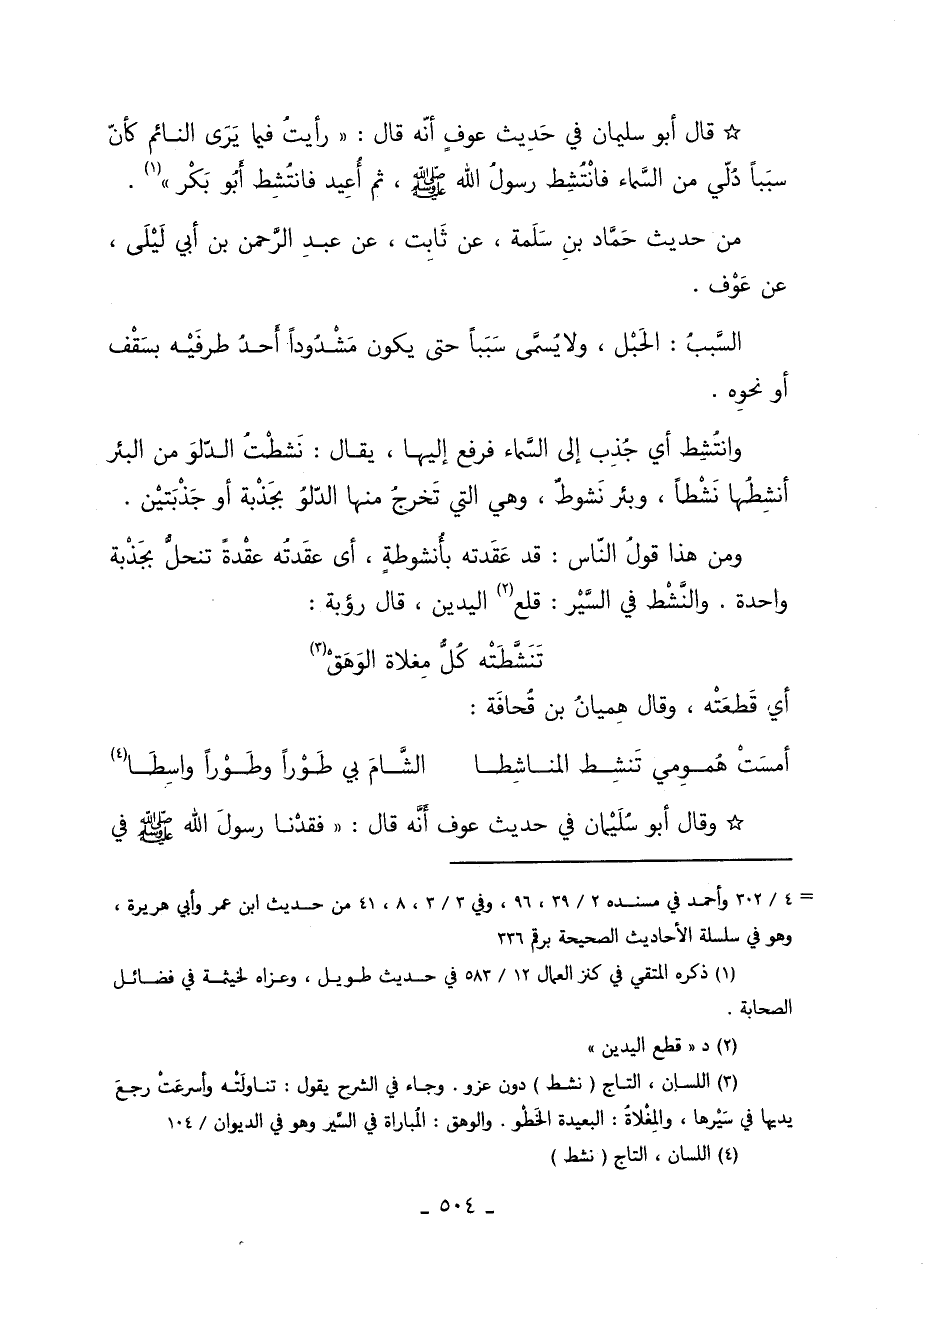 ☆ قال أبو سليمان في حَدِيث عوفٍ أنّه قال : « رأيتُ فيما يَرَى النائم كأنّ
سبَباً دُلّي من السَّماء فانْتُشِط رسولُ الله ﷺ ، ثم أُعِيد فانتُشِط أَبُو بَكْر »(١) .
من حديث حَمَّاد بنِ سَلَمة ، عن ثَابت ، عن عبدِ الرَّحمن بن أبي لَيْلَى ،
عن عَوْف .
السَّبَبُ : الحَبْل ، ولايُسمَّى سَبَباً حتى يكون مَشْدُوداً أَحدُ طرفَيْه بسَقْف
أو نحوِه .
وانتُشِط أي جُذِب إلى السَّماء فرفع إليها ، يقال : نَشطْتُ الدّلوَ من البئر
أنشِطُها نَشْطاً ، وبئر نَشوطٌ ، وهي التي تَخرجُ منها الدّلوُ بجَذْبة أو جَذْبَتَيْن .
ومن هذا قولُ النّاس : قد عَقَدته بأُنشوطةٍ ، أى عقَدتُه عقْدةً تنحلُّ بجَذْبة
واحدة . والنَّشْط في السَّيْر : قلع(٢) اليدين ، قال رؤبة :
تَنَشَّطَتْه كُلُّ مِغلاة الوَهَقْ(٣)
أي قَطعَتْه ، وقال هِميانُ بن قُحافَة :
أمسَتْ هُمومي تَنشِط المناشِطا الشَّامَ بي طَوْراً وطَوْراً واسِطَا(٤)
☆ وقال أبو سُلَيْمان في حديث عوف أَنَّه قال : « فقدْنا رسولَ الله ﷺ في
= ٤ / ٣٠٢ وأحمد في مسنده ٢ / ٣٩ ، ٩٦ ، وفي ٣ / ٣ ، ٨ ، ٤١ من حديث ابن عمر وأبي هريرة ،
وهو في سلسلة الأحاديث الصحيحة برقم ٣٣٦
(١) ذكره المتقي في كنز العمال ١٢ / ٥٨٣ في حديث طويل ، وعزاه لخيثمة في فضائل
الصحابة .
(٢) د « قطع اليدين »
(٣) اللسان ، التاج ( نشط ) دون عزو . وجاء في الشرح يقول : تناولَتْه وأسرعَتْ رجعَ
يديها في سَيْرها ، والمِغْلاةُ : البعيدة الخَطْو . والوهق : المُباراة في السَّير وهو في الديوان / ١٠٤
(٤) اللسان ، التاج ( نشط )
ـ ٥٠٤ ـ